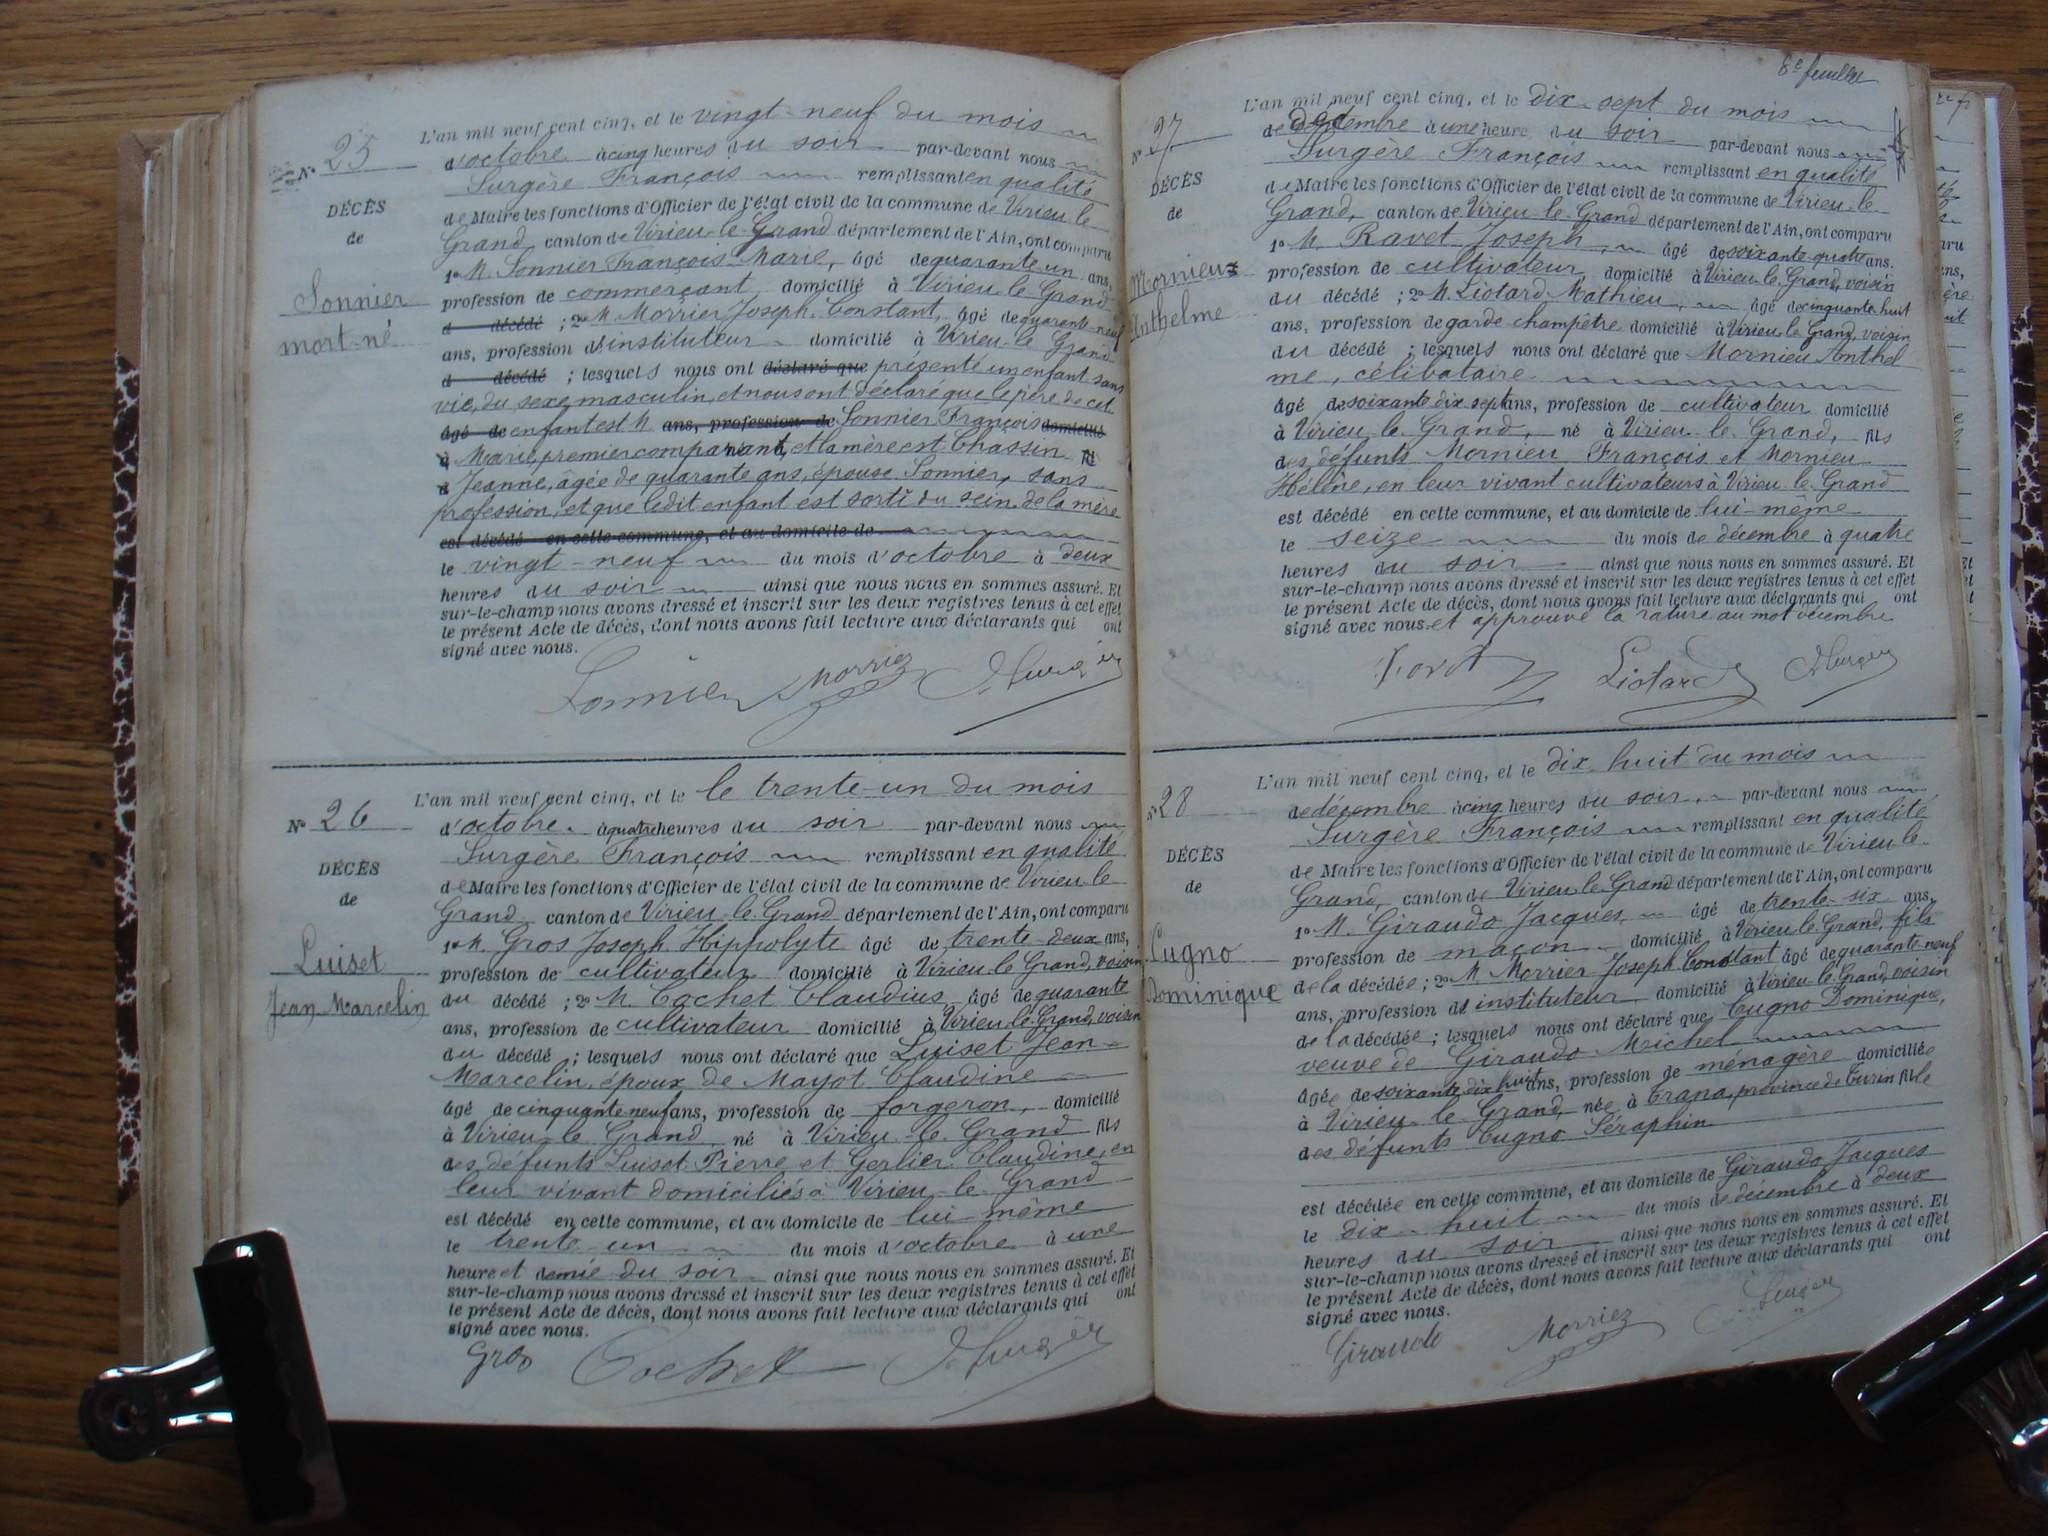 N° 25
DÉCÈS
de
Sonnier
mort-né
L'an mil neuf cent cinq, et le vingt-neuf du mois
d'octobre à cinq heures du soir par-devant nous
Surgère François remplissant en qualité
de Maire les fonctions d'Officier de l'état civil de la commune de Virieu-le-
Grand, canton de Virieu-le-Grand département de l'Ain, ont comparu
1° M. Sonnier François-Marie, âgé de quarante un ans,
profession de commerçant domicilié à Virieu-le-Grand
d décédé ; 2° M. Morrier Joseph-Constant, âgé de quarante-neuf
ans, profession d'instituteur domicilié à Virieu-le-Grand
d décédé ; lesquels nous ont déclaré que présenté un enfant sans
vie, du sexe masculin, et nous ont déclaré que le père de cet
âgé de enfant est M. ans, profession de Sonnier François domicilié
à Marie, premier comparant, et la mère est Chassin fil
d Jeanne, âgée de quarante ans, épouse Sonnier, sans
profession, et que ledit enfant est sorti du sein de la mère
est décédé en cette commune, et au domicile de
le vingt-neuf du mois d'octobre à deux
heures du soir ainsi que nous nous en sommes assuré. Et
sur-le-champ nous avons dressé et inscrit sur les deux registres tenus à cet effet
le présent Acte de décès, dont nous avons fait lecture aux déclarants qui ont
signé avec nous.
Sonnier Morriez Surgère
N° 26
DÉCÈS
de
Luiset
Jean Marcelin
L'an mil neuf cent cinq, et le le trente-un du mois
d'octobre à quatre heures du soir par-devant nous
Surgère François remplissant en qualité
de Maire les fonctions d'Officier de l'état civil de la commune de Virieu-le-
Grand canton de Virieu-le-Grand département de l'Ain, ont comparu
1° M. Gros Joseph Hippolyte âgé de trente-deux ans,
profession de cultivateur domicilié à Virieu-le-Grand, voisin
du décédé ; 2° M. Cochet Claudius âgé de quarante
ans, profession de cultivateur domicilié à Virieu-le-Grand, voisin
du décédé ; lesquels nous ont déclaré que Luiset Jean-
Marcelin, époux de Mayot Claudine
âgé de cinquante-neuf ans, profession de forgeron, domicilié
à Virieu-le-Grand né à Virieu-le-Grand fils
des défunts Luiset Pierre et Gerlier Claudine, en
leur vivant domiciliés à Virieu-le-Grand
est décédé en cette commune, et au domicile de lui-même
le trente-un du mois d'octobre à une
heure et demie du soir ainsi que nous nous en sommes assuré. Et
sur-le-champ nous avons dressé et inscrit sur les deux registres tenus à cet effet
le présent Acte de décès, dont nous avons fait lecture aux déclarants qui ont
signé avec nous.
Gros Cochet Surgère
8e feuillet
N° 27
DÉCÈS
de
Mornieux
Anthelme
L'an mil neuf cent cinq, et le dix-sept du mois
de décembre à une heure du soir par-devant nous
Surgère François remplissant en qualité
de Maire les fonctions d'Officier de l'état civil de la commune de Virieu-le-
Grand, canton de Virieu-le-Grand département de l'Ain, ont comparu
1° M. Ravet Joseph, âgé de soixante-quatre ans.
profession de cultivateur domicilié à Virieu-le-Grand, voisin
du décédé ; 2° M. Liotard Mathieu, âgé de cinquante huit
ans, profession de garde champêtre domicilié à Virieu-le-Grand, voisin
du décédé ; lesquels nous ont déclaré que Mornieu Anthel
me, célibataire
âgé de soixante dix sept ans, profession de cultivateur domicilié
à Virieu-le-Grand, né à Virieu-le-Grand, fils
des défunts Mornieu François et Mornieu
Hélène, en leur vivant cultivateurs à Virieu-le-Grand
est décédé en cette commune, et au domicile de lui-même
le seize du mois de décembre à quatre
heures du soir ainsi que nous nous en sommes assuré. Et
sur-le-champ nous avons dressé et inscrit sur les deux registres tenus à cet effet
le présent Acte de décès, dont nous avons fait lecture aux déclarants qui ont
signé avec nous et approuvé la rature au mot décembre
Liotard Surgère
N° 28
DÉCÈS
de
Cugno
Dominique
L'an mil neuf cent cinq, et le dix-huit du mois
de décembre à cinq heures du soir, par-devant nous
Surgère François remplissant en qualité
de Maire les fonctions d'Officier de l'état civil de la commune de Virieu-le-
Grand, canton de Virieu-le-Grand département de l'Ain, ont comparu
1° M. Giraudo Jacques âgé de trente-six ans,
profession de maçon domicilié à Virieu-le-Grand, fils
de la décédée ; 2° M. Morrier Joseph Constant âgé de quarante-neuf
ans, profession d'instituteur domicilié à Virieu-le-Grand, voisin
de la décédée ; lesquels nous ont déclaré que Cugno Dominique,
veuve de Giraudo Michel
âgée de soixante dix huit ans, profession de ménagère domiciliée
à Virieu-le-Grand née à Trana, province de Turin fille
des défunts Cugno Séraphin
est décédée en cette commune, et au domicile de Giraudo Jacques
le dix-huit du mois de décembre à deux
heures du soir ainsi que nous nous en sommes assuré. Et
sur-le-champ nous avons dressé et inscrit sur les deux registres tenus à cet effet
le présent Acte de décès, dont nous avons fait lecture aux déclarants qui ont
signé avec nous.
Giraudo Morriez Surgère